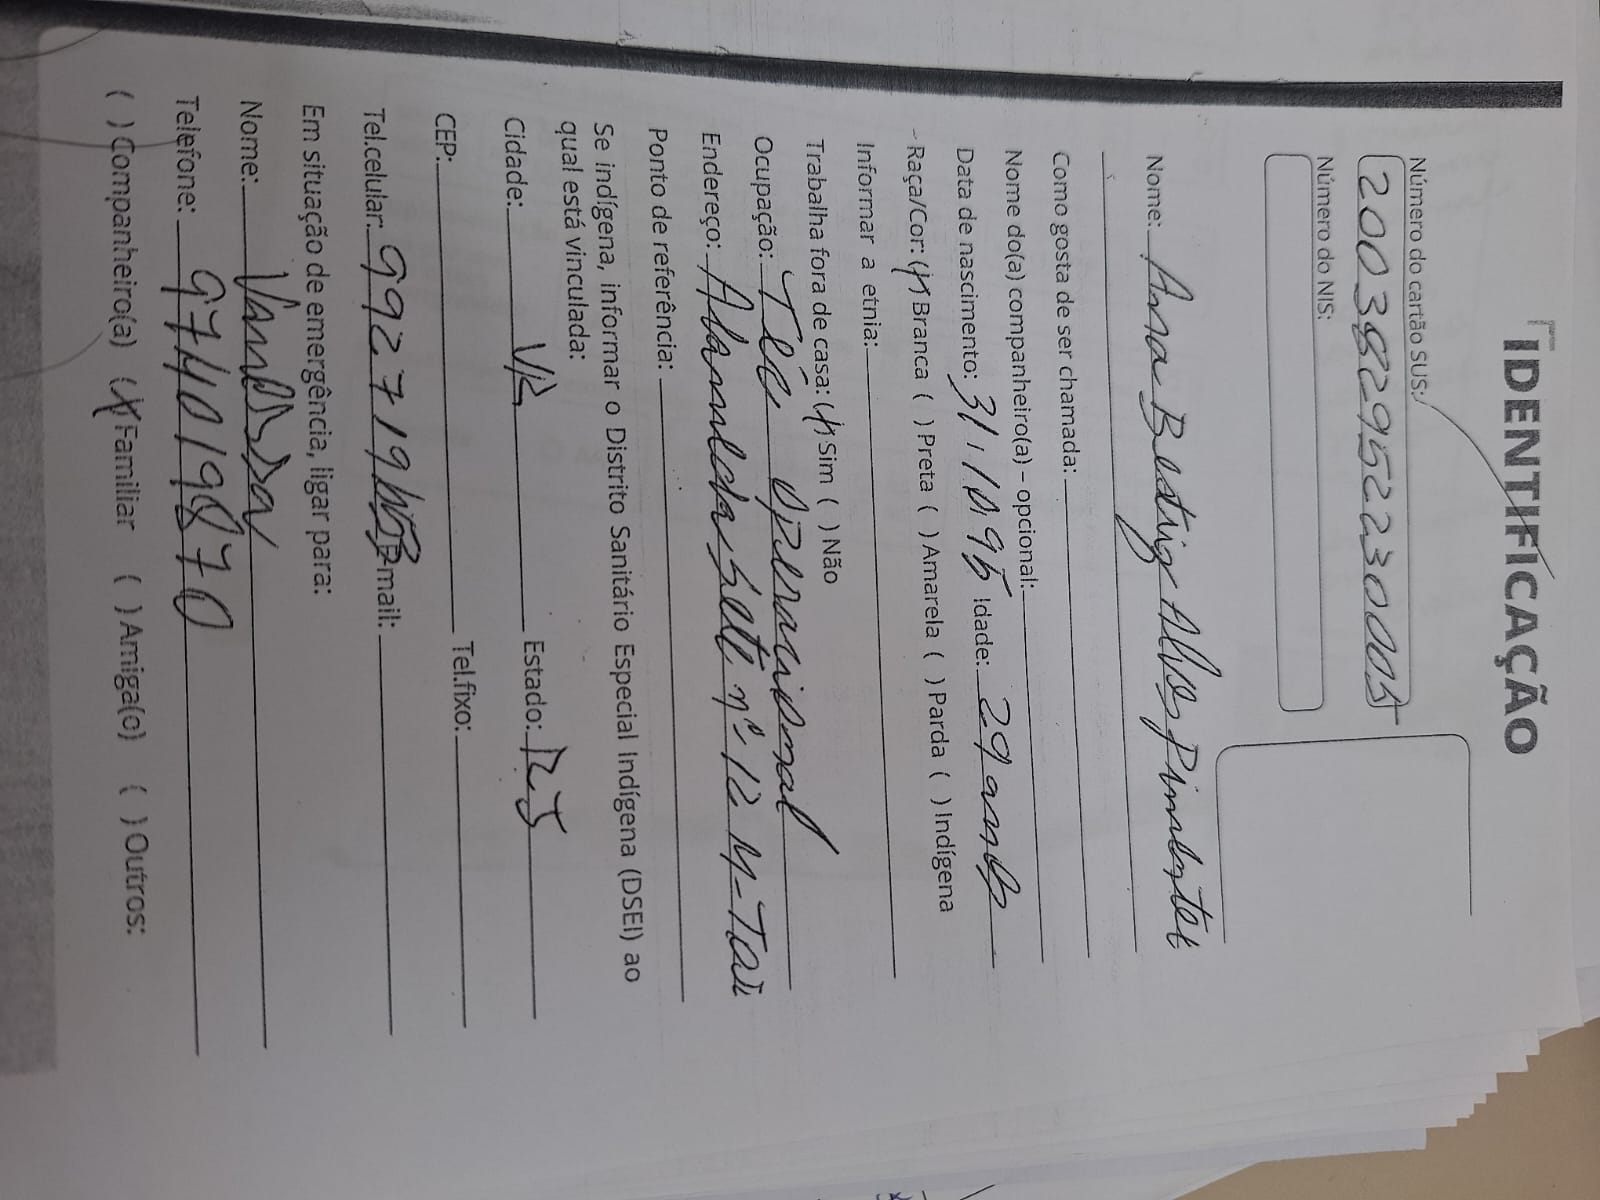 IDENTIFICAÇÃO
Número do cartão SUS:
200 3882952230005
Número do NIS:
Nome: Anna Beatriz Alves Pimentel
Como gosta de ser chamada:
Nome do(a) companheiro(a) – opcional:
Data de nascimento: 31, 10, 96 Idade: 29 anos
Raça/Cor: (X) Branca ( ) Preta ( ) Amarela ( ) Parda ( ) Indígena
Informar a etnia:
Trabalha fora de casa: (X) Sim ( ) Não
Ocupação: Téc. operacional
Endereço: nº 12
Ponto de referência:
Se indígena, informar o Distrito Sanitário Especial Indígena (DSEI) ao
qual está vinculada:
Cidade: VR Estado: RJ
CEP: Tel.fixo:
Tel.celular: 992719 E-mail:
Em situação de emergência, ligar para:
Nome:
Telefone: 974019870
( ) Companheiro(a) (X) Familiar ( ) Amiga(o) ( ) Outros: